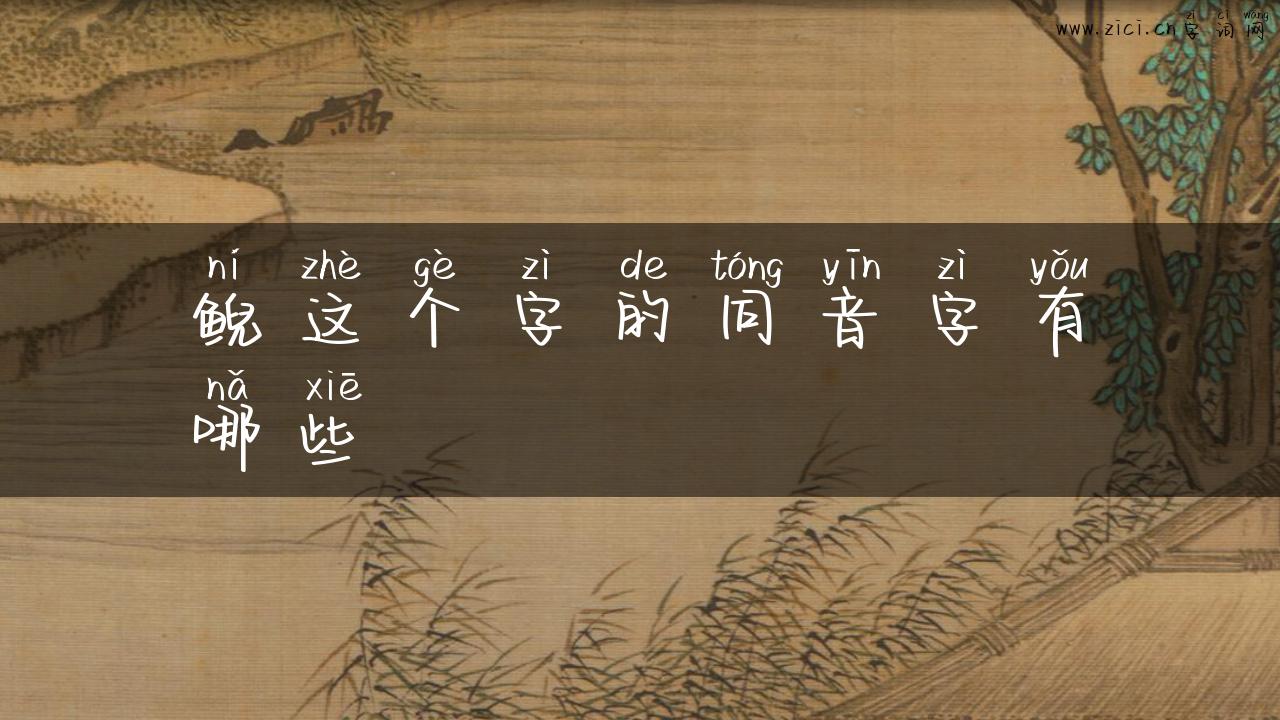 zì cí wǎng
www.zici.cn字词网
ní zhè gè zì de tóng yīn zì yǒu
鲵这个字的同音字有
nǎ xiē
哪些